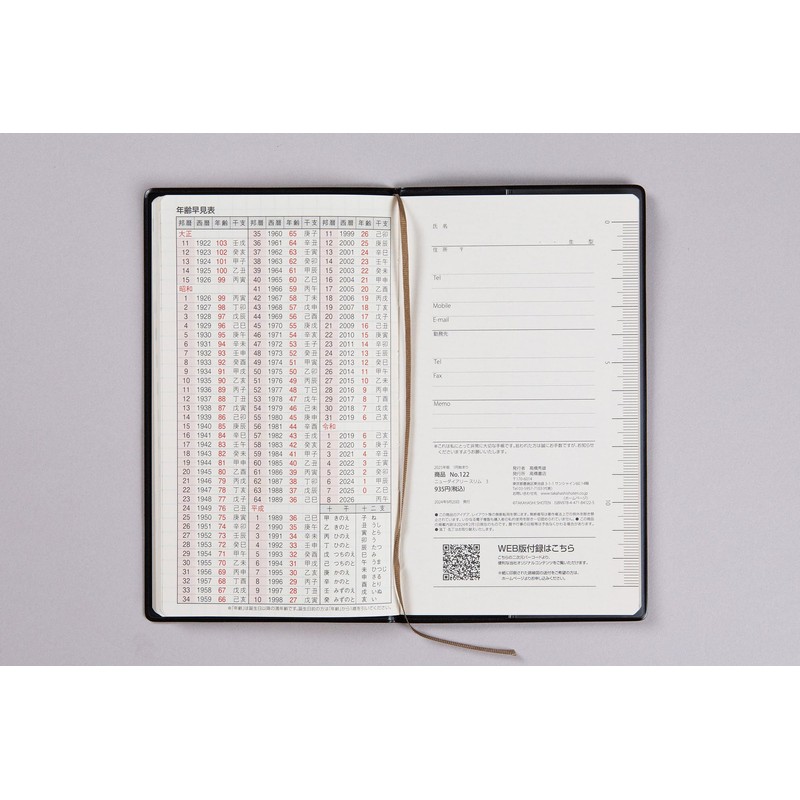 年齢早見表
邦暦 西暦 年齢 干支 邦暦 西暦 年齢 干支 邦暦 西暦 年齢 干支
大正 35 1960 65 庚子 11 1999 26 己卯
11 1922 103 壬戌 36 1961 64 辛丑 12 2000 25 庚辰
12 1923 102 癸亥 37 1962 63 壬寅 13 2001 24 辛巳
13 1924 101 甲子 38 1963 62 癸卯 14 2002 23 壬午
14 1925 100 乙丑 39 1964 61 甲辰 15 2003 22 癸未
15 1926 99 丙寅 40 1965 60 乙巳 16 2004 21 甲申
昭和 41 1966 59 丙午 17 2005 20 乙酉
1 1926 99 丙寅 42 1967 58 丁未 18 2006 19 丙戌
2 1927 98 丁卯 43 1968 57 戊申 19 2007 18 丁亥
3 1928 97 戊辰 44 1969 56 己酉 20 2008 17 戊子
4 1929 96 己巳 45 1970 55 庚戌 21 2009 16 己丑
5 1930 95 庚午 46 1971 54 辛亥 22 2010 15 庚寅
6 1931 94 辛未 47 1972 53 壬子 23 2011 14 辛卯
7 1932 93 壬申 48 1973 52 癸丑 24 2012 13 壬辰
8 1933 92 癸酉 49 1974 51 甲寅 25 2013 12 癸巳
9 1934 91 甲戌 50 1975 50 乙卯 26 2014 11 甲午
10 1935 90 乙亥 51 1976 49 丙辰 27 2015 10 乙未
11 1936 89 丙子 52 1977 48 丁巳 28 2016 9 丙申
12 1937 88 丁丑 53 1978 47 戊午 29 2017 8 丁酉
13 1938 87 戊寅 54 1979 46 己未 30 2018 7 戊戌
14 1939 86 己卯 55 1980 45 庚申 31 2019 6 己亥
15 1940 85 庚辰 56 1981 44 辛酉 令和
16 1941 84 辛巳 57 1982 43 壬戌 1 2019 6 己亥
17 1942 83 壬午 58 1983 42 癸亥 2 2020 5 庚子
18 1943 82 癸未 59 1984 41 甲子 3 2021 4 辛丑
19 1944 81 甲申 60 1985 40 乙丑 4 2022 3 壬寅
20 1945 80 乙酉 61 1986 39 丙寅 5 2023 2 癸卯
21 1946 79 丙戌 62 1987 38 丁卯 6 2024 1 甲辰
22 1947 78 丁亥 63 1988 37 戊辰 7 2025 0 乙巳
23 1948 77 戊子 64 1989 36 己巳 8 2026 丙午
24 1949 76 己丑 平成 十 干 十二支
25 1950 75 庚寅 1 1989 36 己巳 甲 きのえ 子 ね
26 1951 74 辛卯 2 1990 35 庚午 乙 きのと 丑 うし
27 1952 73 壬辰 3 1991 34 辛未 丙 ひのえ 寅 とら
28 1953 72 癸巳 4 1992 33 壬申 丁 ひのと 卯 う
29 1954 71 甲午 5 1993 32 癸酉 戊 つちのえ 辰 たつ
30 1955 70 乙未 6 1994 31 甲戌 己 つちのと 巳 み
31 1956 69 丙申 7 1995 30 乙亥 庚 かのえ 午 うま
32 1957 68 丁酉 8 1996 29 丙子 辛 かのと 未 ひつじ
33 1958 67 戊戌 9 1997 28 丁丑 壬 みずのえ 申 さる
34 1959 66 己亥 10 1998 27 戊寅 癸 みずのと 酉 とり
戌 いぬ
亥 い
氏 名
年 型
住 所 〒
Tel
Mobile
E-mail
勤務先
Tel
Fax
Memo
商品 No.122
ニューダイアリー スリム 3
935円(税込)
発行所 高橋書店
WEB版付録はこちら
こちらの二次元バーコードより、
便利な当社オリジナルコンテンツをご覧いただけます。
ホームページよりお申し込みください。